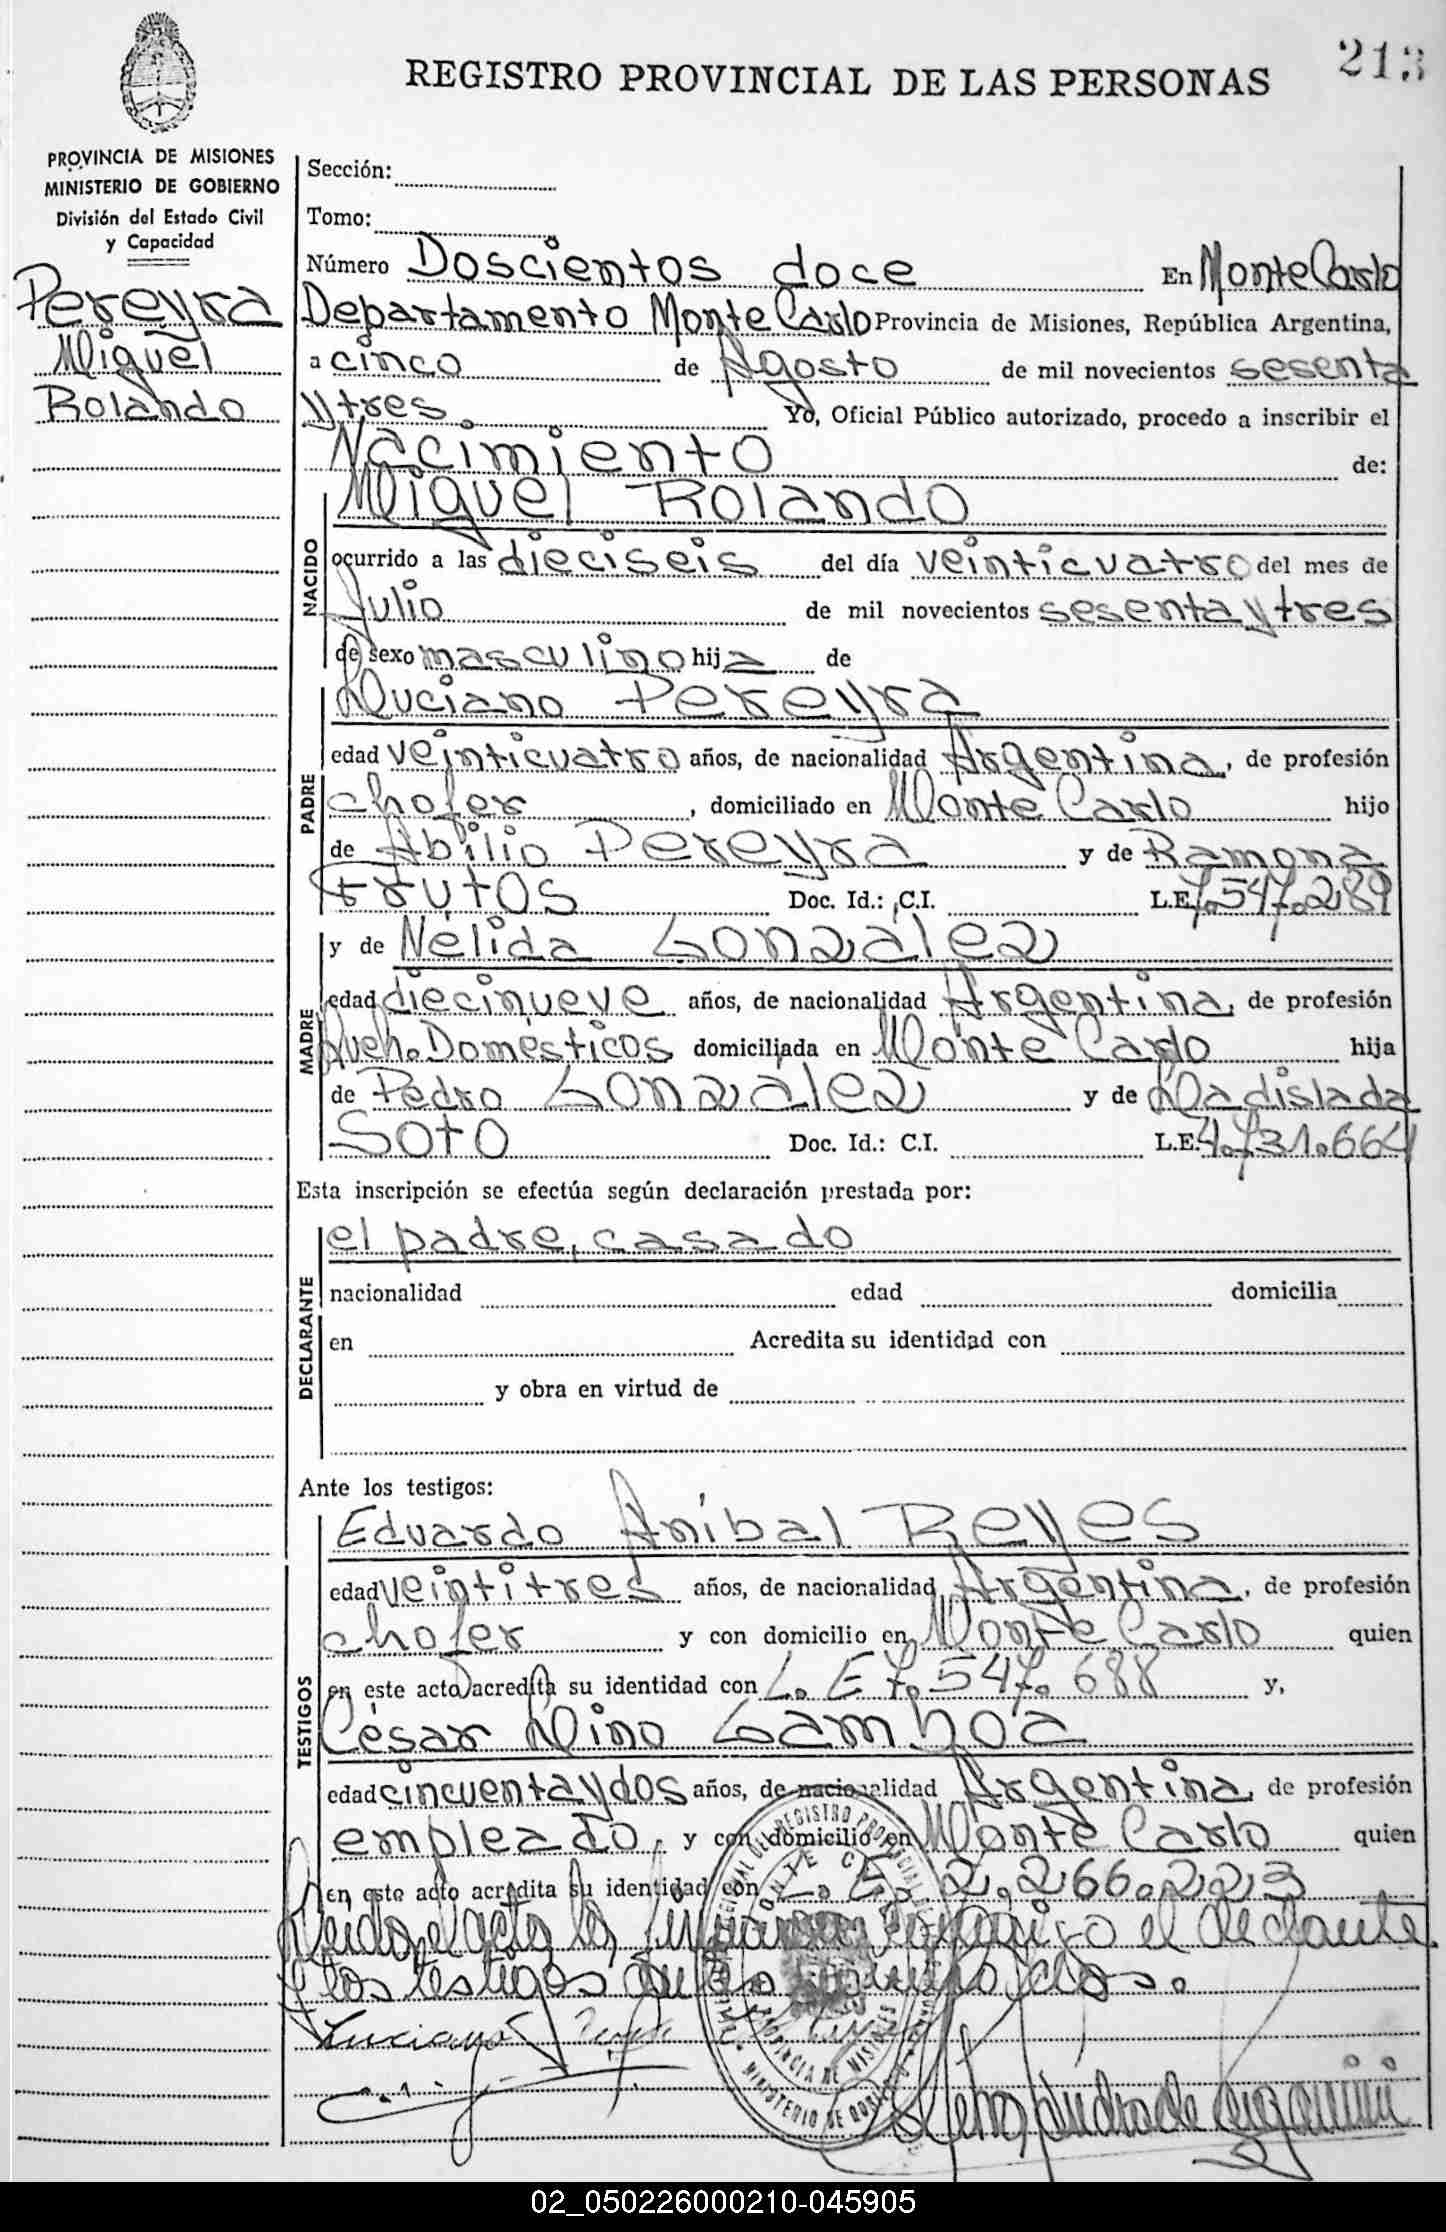 213
REGISTRO PROVINCIAL DE LAS PERSONAS
PROVINCIA DE MISIONES
MINISTERIO DE GOBIERNO
División del Estado Civil
y Capacidad
Pereyra
Miguel
Rolando
Sección:
Tomo:
Número Doscientos doce En Monte Carlo
Departamento Monte Carlo Provincia de Misiones, República Argentina,
a cinco de Agosto de mil novecientos sesenta
y tres Yo, Oficial Público autorizado, procedo a inscribir el
Nacimiento de:
NACIDO
Miguel Rolando
ocurrido a las dieciseis del día veinticuatro del mes de
Julio de mil novecientos sesenta y tres
de sexo masculino hij a de
PADRE
Luciano Pereyra
edad veinticuatro años, de nacionalidad Argentina, de profesión
chofer, domiciliado en Monte Carlo hijo
de Abilio Pereyra y de Ramona
Frutos Doc. Id.: C.I. L.E. 7.547.289
MADRE
y de Nélida González
edad diecinueve años, de nacionalidad Argentina, de profesión
Queh. Domésticos domiciliada en Monte Carlo hija
de Pedro González y de Ladislada
Soto Doc. Id.: C.I. L.E. 4.731.664
Esta inscripción se efectúa según declaración prestada por:
DECLARANTE
el padre, casado
nacionalidad edad domicilia
en Acredita su identidad con
y obra en virtud de
Ante los testigos:
TESTIGOS
Eduardo Aníbal Reyes
edad veintitres años, de nacionalidad Argentina, de profesión
chofer y con domicilio en Monte Carlo quien
en este acto acredita su identidad con L. E 7.547.688 y,
César Lino Gamboa
edad cincuenta y dos años, de nacionalidad Argentina, de profesión
empleado, y con domicilio en Monte Carlo quien
en este acto acredita su identidad con L. E. 2.266.223
Leida el acta la firman conmigo el declante
y los testigos
Luciano
REGISTRO PROVINCIAL DE
MONTE CARLO
PROVINCIA DE MISIONES
MINISTERIO DE GOBIERNO
02_050226000210-045905